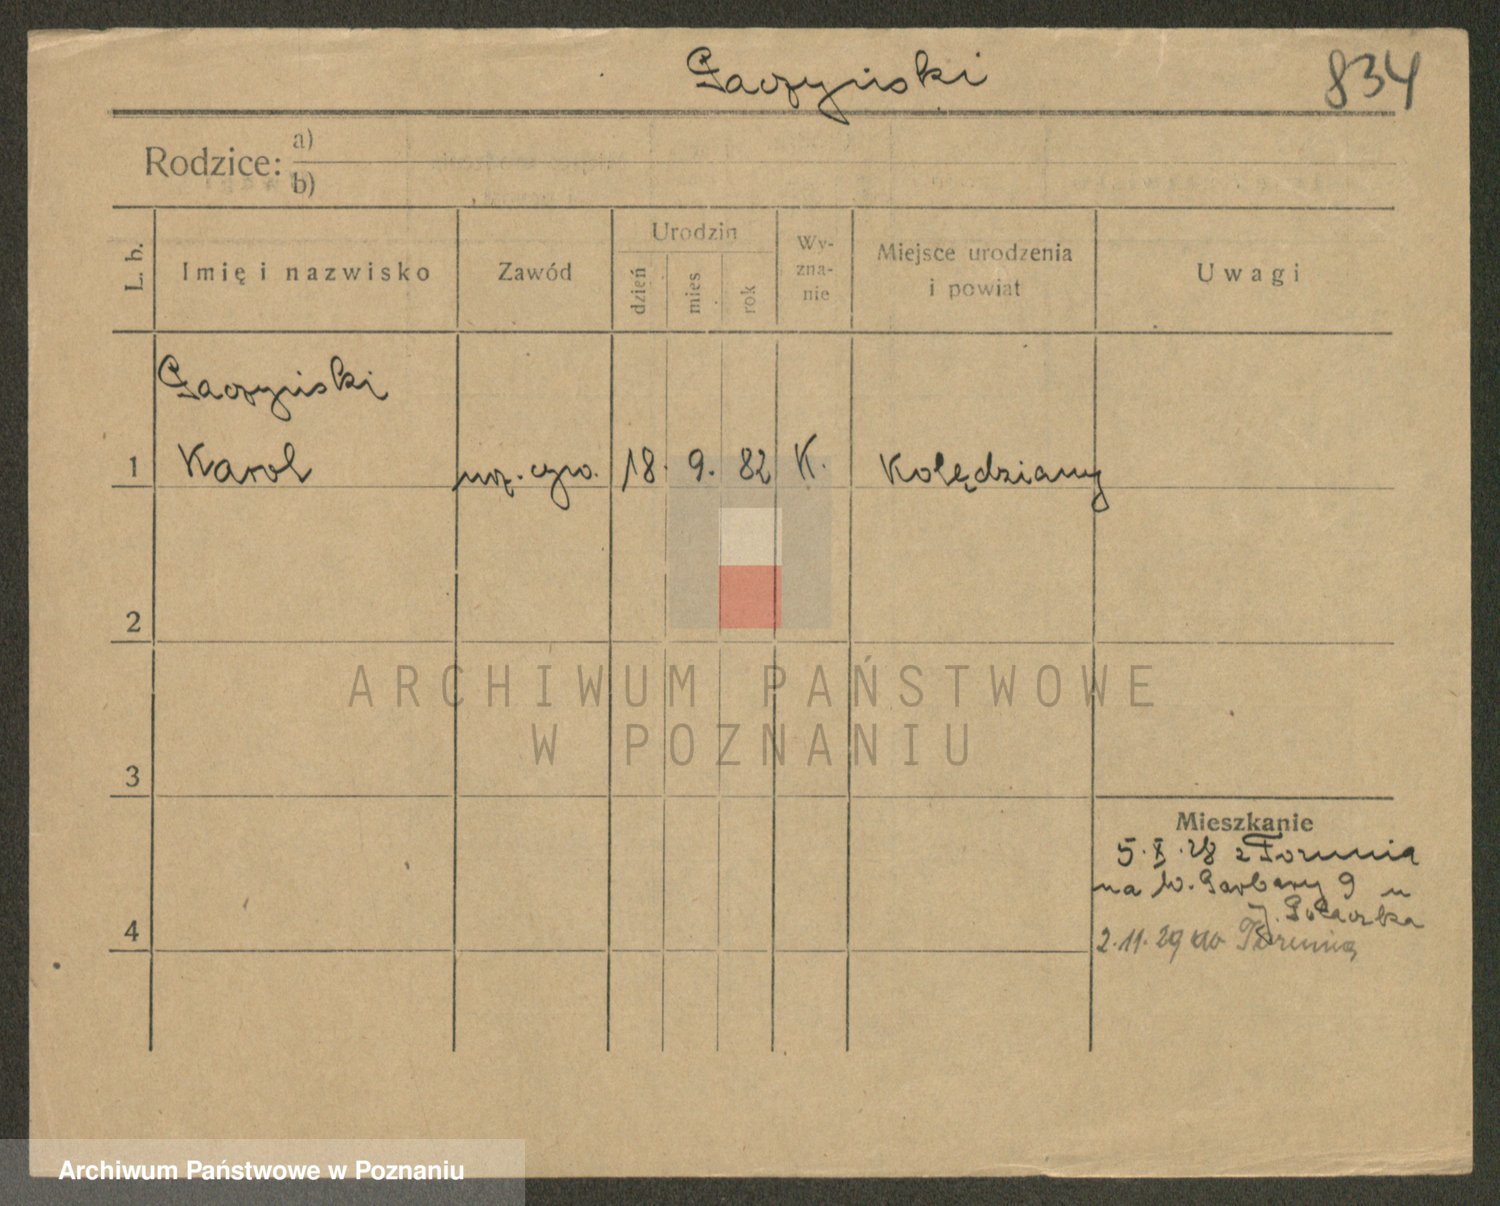 Gaczyński 834
Rodzice: a)
b)
L. b. Imię i nazwisko Zawód Urodzin dzień mies rok Wy-zna-nie Miejsce urodzenia i powiat Uwagi
Gaczyński
1 Karol urz. cyw. 18. 9. 82 K. Kolędziany
2
ARCHIWUM PAŃSTWOWE
W POZNANIU
3
Mieszkanie
5.X.28 z Torunia
na W. Garbary 9 u
J.
4
2.11.29 do Torunia
Archiwum Państwowe w Poznaniu